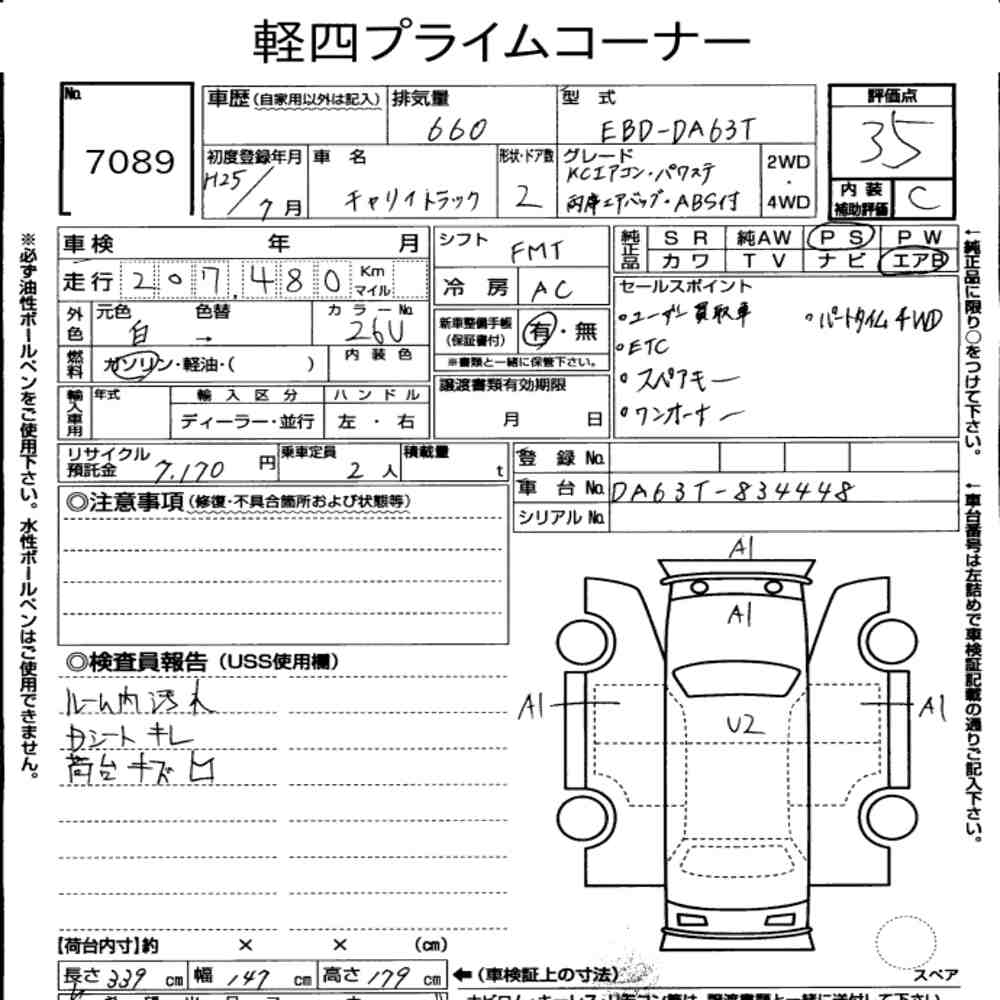 軽四プライムコーナー
No. 7089
車歴(自家用以外は記入) 排気量 660 型式 EBD-DA63T
評価点 35
初度登録年月 H25/7月 車名 キャリイトラック 形状・ドア数 2 グレード KCエアコン・パワステ 両席エアバッグ・ABS付 2WD・4WD
内装補助評価 C
車検 年 月
シフト FMT
純正品 SR 純AW PS PW
カワ TV ナビ エアB
走行 207,480 Km マイル
冷房 AC
セールスポイント
・ユーザー買取車 ・パートタイム4WD
・ETC
・スペアキー
・ワンオーナー
外色 元色 白 色替 → カラーNo. 26U
新車整備手帳(保証書付) 有・無
※書類と一緒に保管下さい。
燃料 ガソリン・軽油・( ) 内装色
譲渡書類有効期限
月 日
輸入車用 年式 輸入区分 ハンドル
ディーラー・並行 左・右
リサイクル預託金 7,170円 乗車定員 2人 積載量 t
登録No.
車台No. DA63T-834448
シリアルNo.
◎注意事項(修復・不具合箇所および状態等)
◎検査員報告(USS使用欄)
ルーム内汚れ
Dシートキレ
荷台キズ凹
A1
A1
A1
U2
A1
【荷台内寸】約 × × (cm)
長さ 339 cm 幅 147 cm 高さ 179 cm ←(車検証上の寸法)
スペア
※必ず油性ボールペンをご使用下さい。水性ボールペンはご使用できません。
←純正品に限り○をつけて下さい。
←車台番号は左詰めで車検証記載の通りご記入下さい。